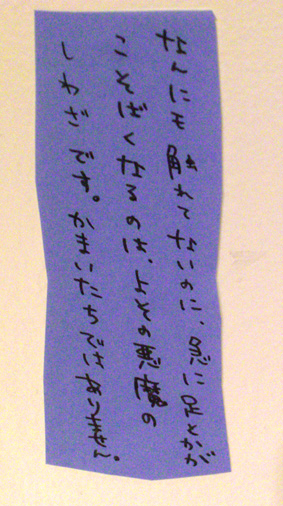 なんにも触れてないのに、急に足とかが
こそばくなるのは、よその悪魔の
しわざです。かまいたちではありません。